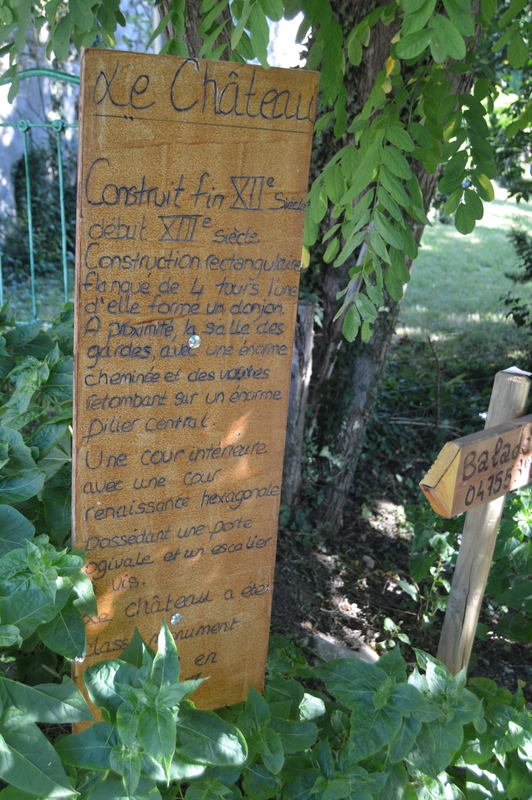 Le Château
Construit fin XIIe Siècle
début XIIIe Siècle
Construction rectangulaire
flanque de 4 tours l'une
d'elle forme un donjon.
A proximité, la salle des
gardes, avec une énorme
cheminée et des voutes
retombant sur un énorme
pilier central.
Une cour intérieure
avec une cour
renaissance hexagonale
possédant une porte
ogivale et un escalier
vis.
Le château a été
class monument
en
Balad
04755